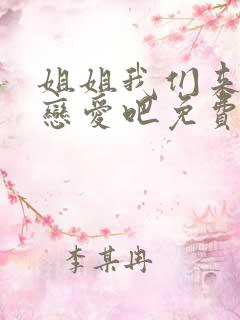 姐姐我们来
戀愛吧免費
李某冉